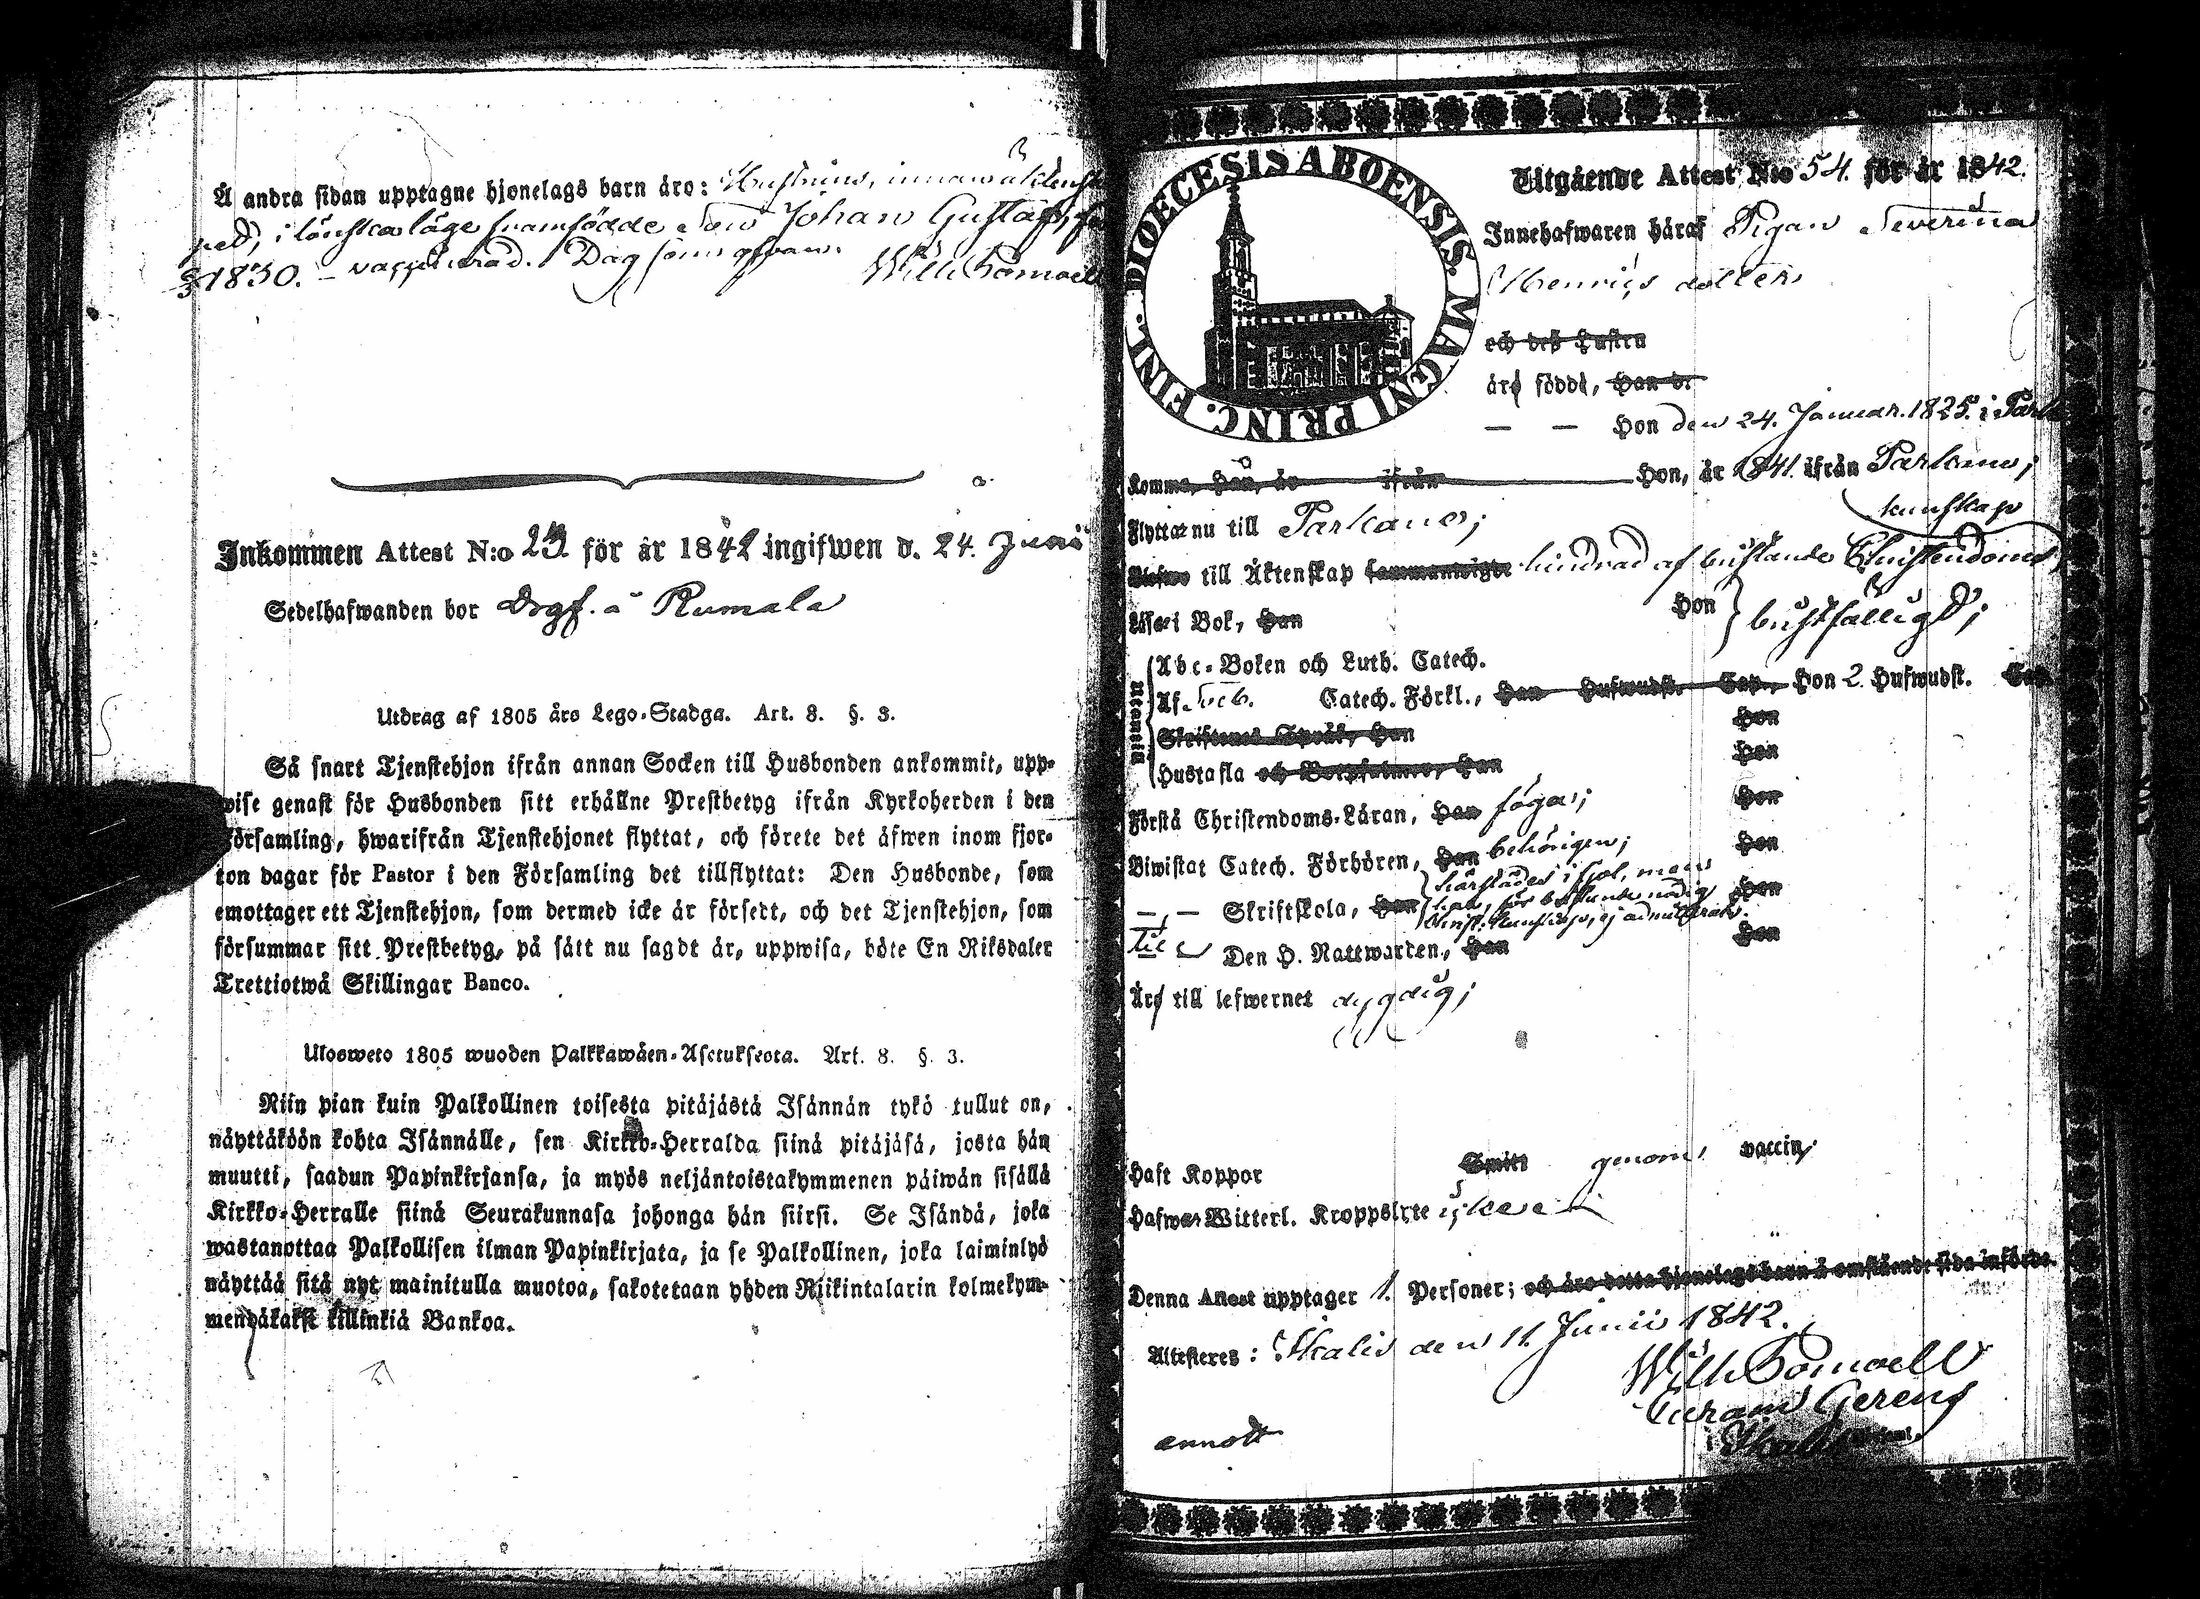 Å andra sidan upptagne hjonelags barn äro: Hustruns,
i lönskaläge framfödde Son Johan Gustaf,
1830. – vaccinerad. Dag som ofvan.
Wilh Bomoell
Inkommen Attest N:o 23. för år 1842 ingifwen d. 24. Junii
Sedelhafwanden bor Drgf. å Rumala
Utdrag af 1805 års Lego-Stadga. Art. 8. §. 3.
Så snart Tjenstehjon ifrån annan Socken till Husbonden ankommit, upp-
wise genast för Husbonden sitt erhållne Prestbetyg ifrån Kyrkoherden i den
Församling, hwarifrån Tjenstehjonet flyttat, och förete det äfwen inom fjor-
ton dagar för Pastor i den Församling det tillflyttat: Den Husbonde, som
emottager ett Tjenstehjon, som dermed icke är försedt, och det Tjenstehjon, som
försummar sitt Prestbetyg, på sätt nu sagdt är, uppwisa, böte En Riksdaler
Trettiotwå Skillingar Banco.
Ulosweto 1805 wuoden Palkkawäen-Asetuksesta. Art. 8. §. 3.
Niin pian kuin Palkollinen toisesta pitäjästä Isännän tykö tullut on,
näyttäköön kohta Isännälle, sen Kirkko-Herralda siinä pitäjäsä, josta hän
muutti, saadun Papinkirjansa, ja myös neljäntoistakymmenen päiwän sisällä
Kirkko-Herralle siinä Seurakunnasa johonga hän siirsi. Se Isändä, joka
wastanottaa Palkollisen ilman Papinkirjata, ja se Palkollinen, joka laiminlyö
näyttää sitä nyt mainitulla muotoa, sakotetaan yhden Riikintalarin kolmekym-
mendäkaksi killinkiä Bankoa.
DIOECESIS ABOENSIS. MAGNI PRINC. FINL.
Utgående Attest N:o 54. för år 1842.
Innehafwaren häraf Pigan Severina
Henrics dotter
och deß Hustru
äro födde, Han d.
— — Hon den 24. Januar. 1825. i
Komma, Han, år ifrån Hon, år 1841. ifrån Parkano;
Flyttar nu till Parkano;
kunskap
till Äktenskap hindrad af bristande Christendoms
Läser i Bok, Han Hon bristfälligt;
Utantill
Abc-Boken och Luth. Catech.
Af Sveb. Catech. Förkl., Han Hufwudst. Cap., Hon 2. Hufwudst. Cap.
Skriftenes Språk, Han Hon
Hustafla och Botpsalmer, Han Hon
Förstå Christendoms-Läran, Han fogas; Hon
Biwistat Catech. Förhören, Han behörigen; Hon
— — Skriftskola, Han härstädes i fjol, men Hon
Den H. Nattwarden, Han Hon
Äro till lefwernet dygdig;
Haft Koppor Smitt genom vaccin;
Hafwa Witterl. Kroppslyte
Denna Attest upptager 1. Personer; och äro detta hjonelags barn å omstående sida införde.
Attesteres: Ikalis den 11. Junii 1842.
Wilh Bomoell
Curam Gerens
i Ikalis
annott